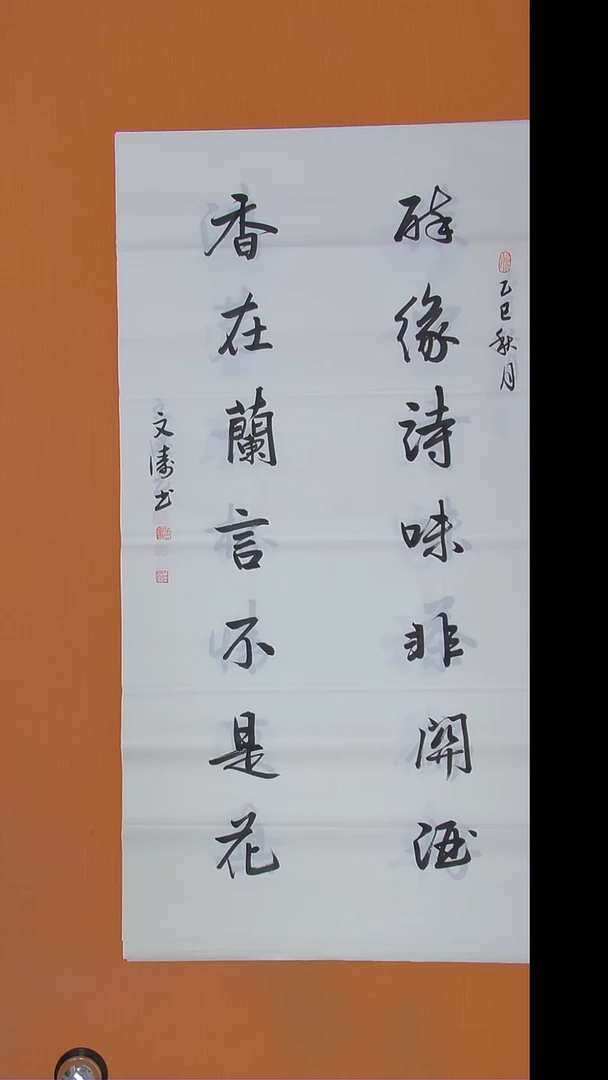 乙巳秋月
醉缘詩味非開酒
香在蘭言不是花
文涛书